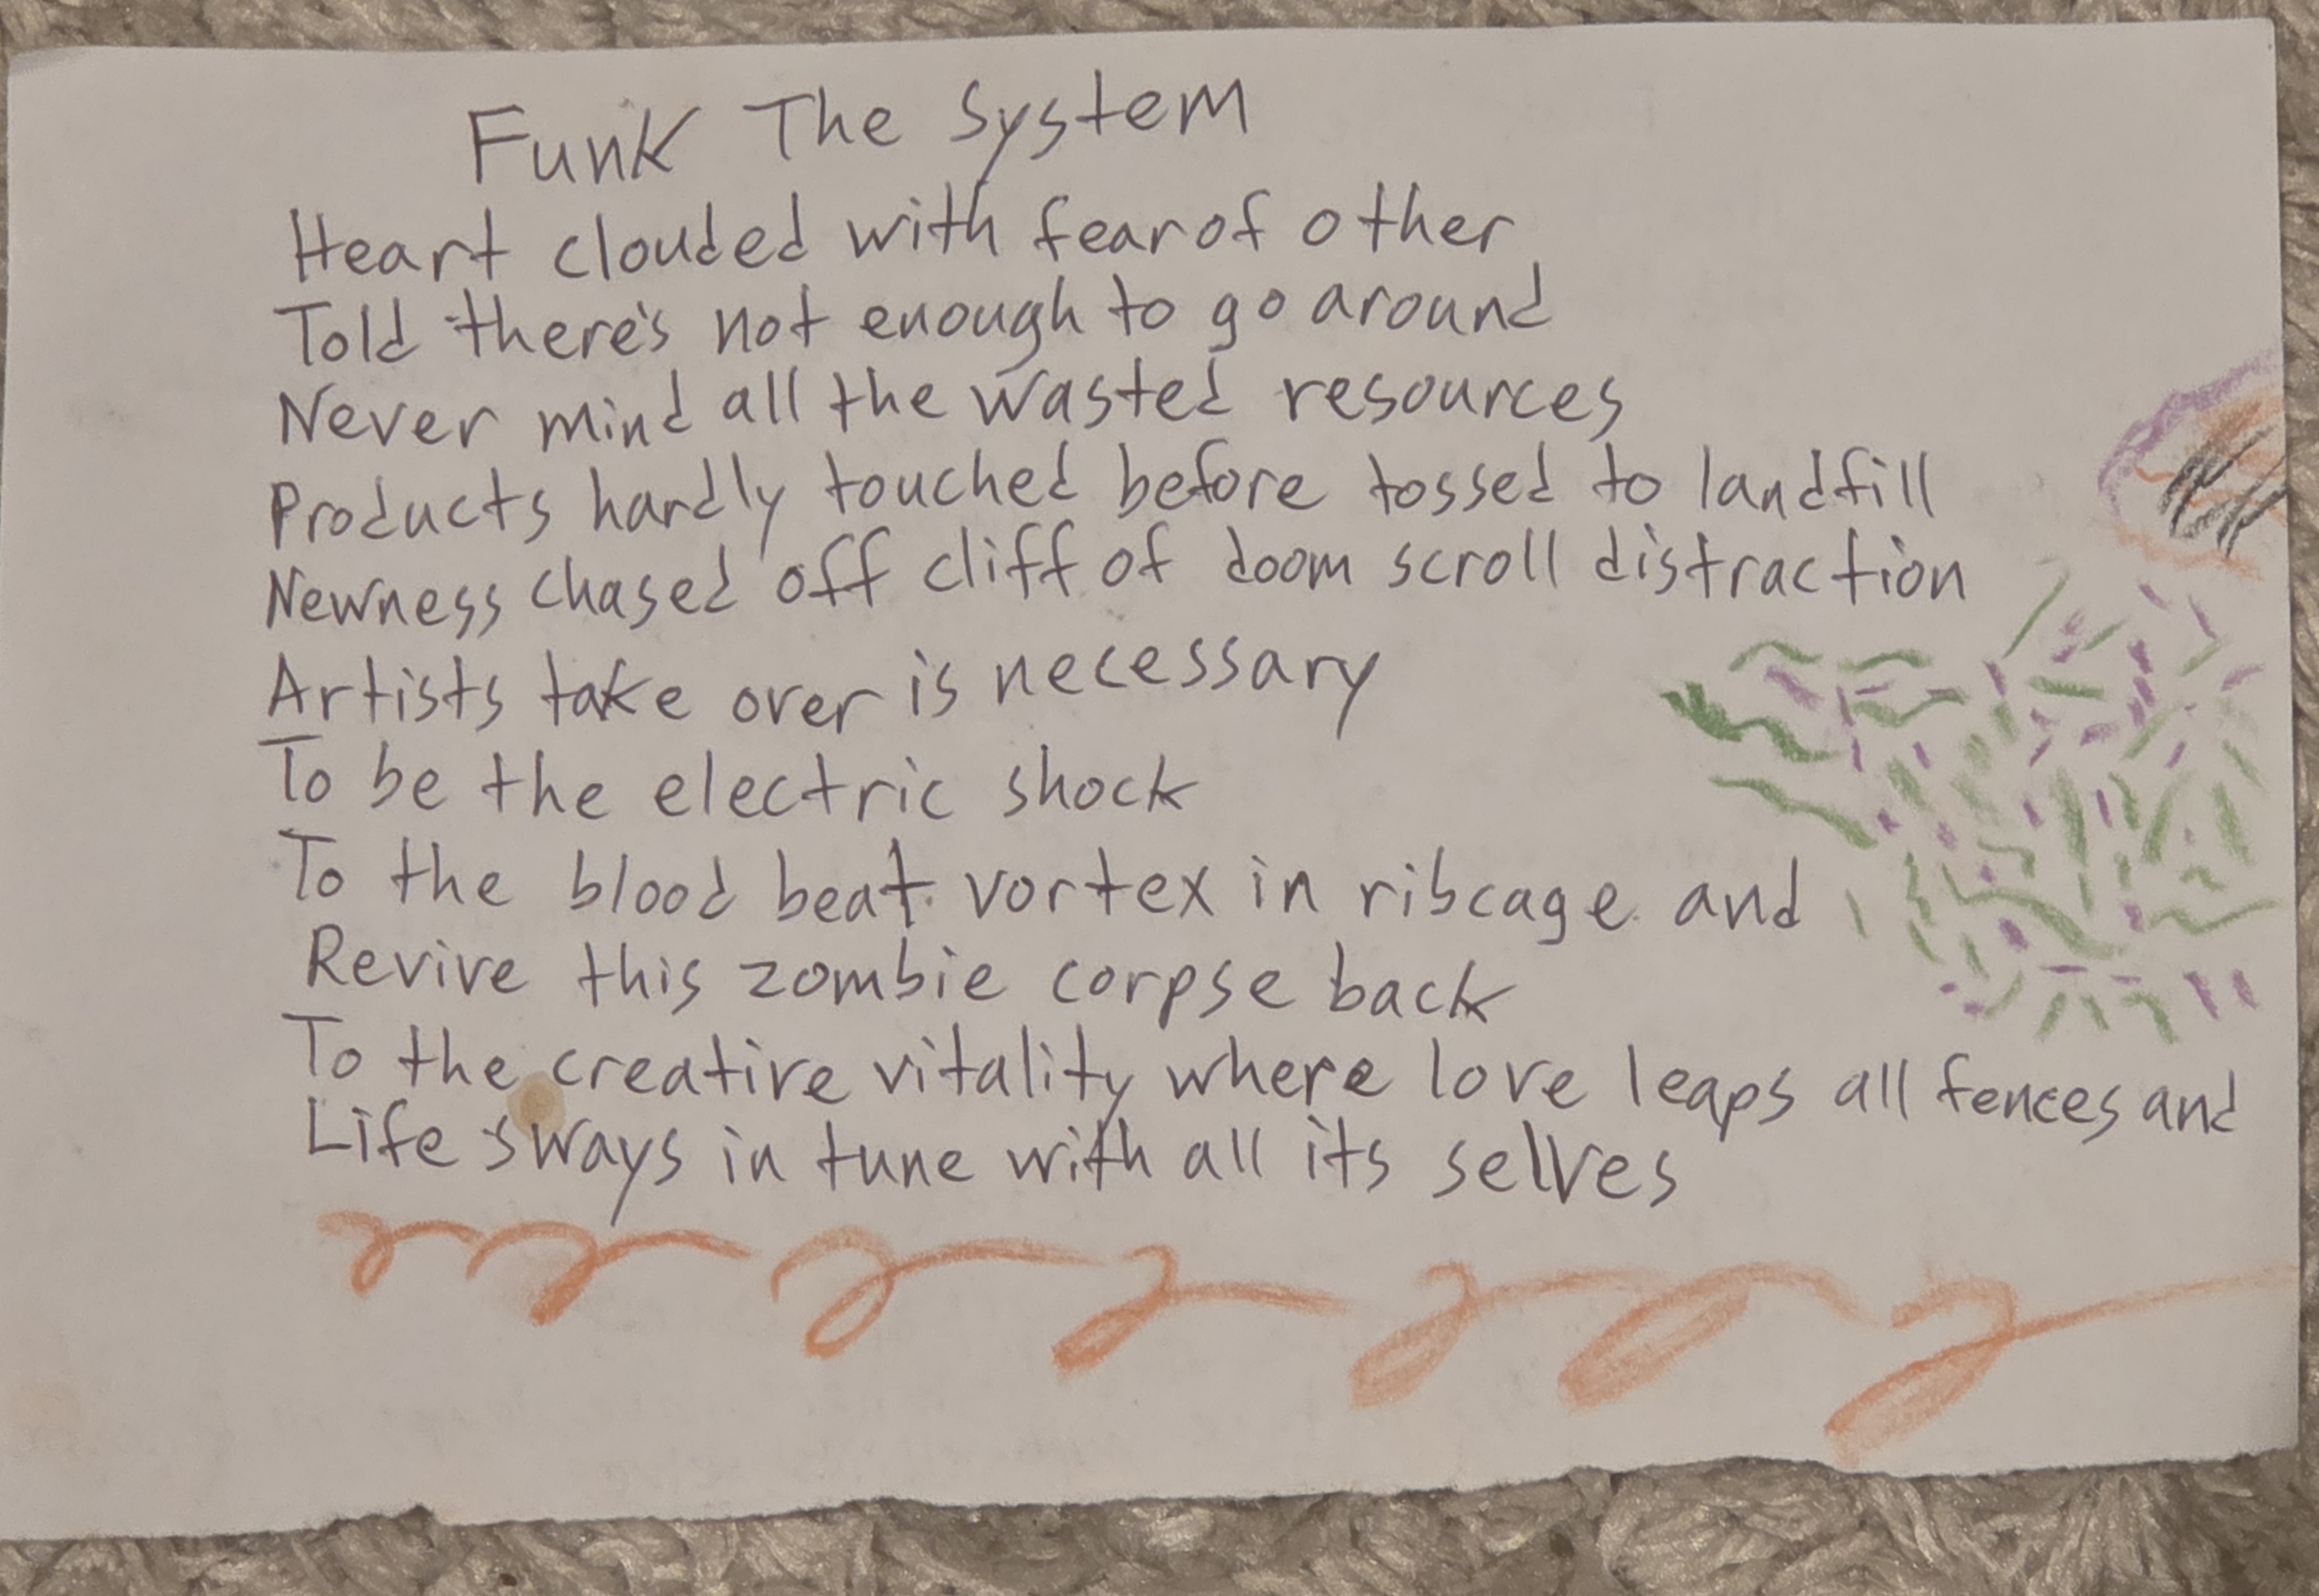 Funk The System
Heart clouded with fear of other
Told there's not enough to go around
Never mind all the wasted resources
Products hardly touched before tossed to landfill
Newness chased off cliff of doom scroll distraction
Artists take over is necessary
To be the electric shock
To the blood beat vortex in ribcage and
Revive this zombie corpse back
To the creative vitality where love leaps all fences and
Life sways in tune with all its selves